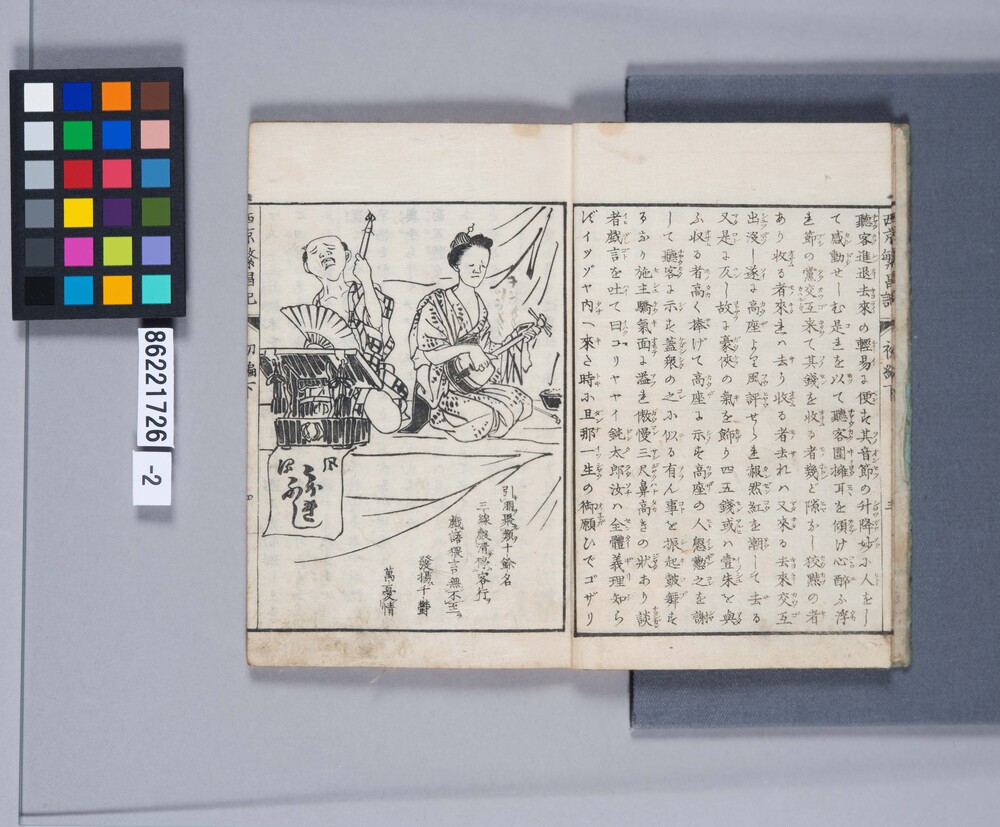 西京繁昌記
初編下
三
聽客進退去來の輕易に便す其音節の升降妙小人をし
て感動せしむ是きを以て聽客圍擁耳を傾け心醉ふ浮
き節の黨交互来て其錢を收る者幾ど隙かし狡黠の者
あり收る者來きハ去り收る者去れハ又來る去來交互
出沒し遂に高座より風評せられ赧然紅を潮して去る
又是に反し故に豪俠の氣を飾り四五錢或ハ壹朱と與
ふ收る者高く捧げて高座に示す高座の人慇懃之を謝
して聽客に示す蓋衆の之小似る有ん事を振起鼓舞す
るなり施主驕氣面に溢き傲慢三尺鼻高きの狀あり談
者戯言を吐て曰コリヤヤイ鈍太郎汝ハ全體義理知ら
ずイツゾヤ内へ來さ時小旦那一生の御願ひでゴザリ
引用聚類十餘名
三線皷清聽客行
戲謔猥言無不至
發揚千鬱
萬憂情
西京繁昌記
初編下
四
86221726
-2